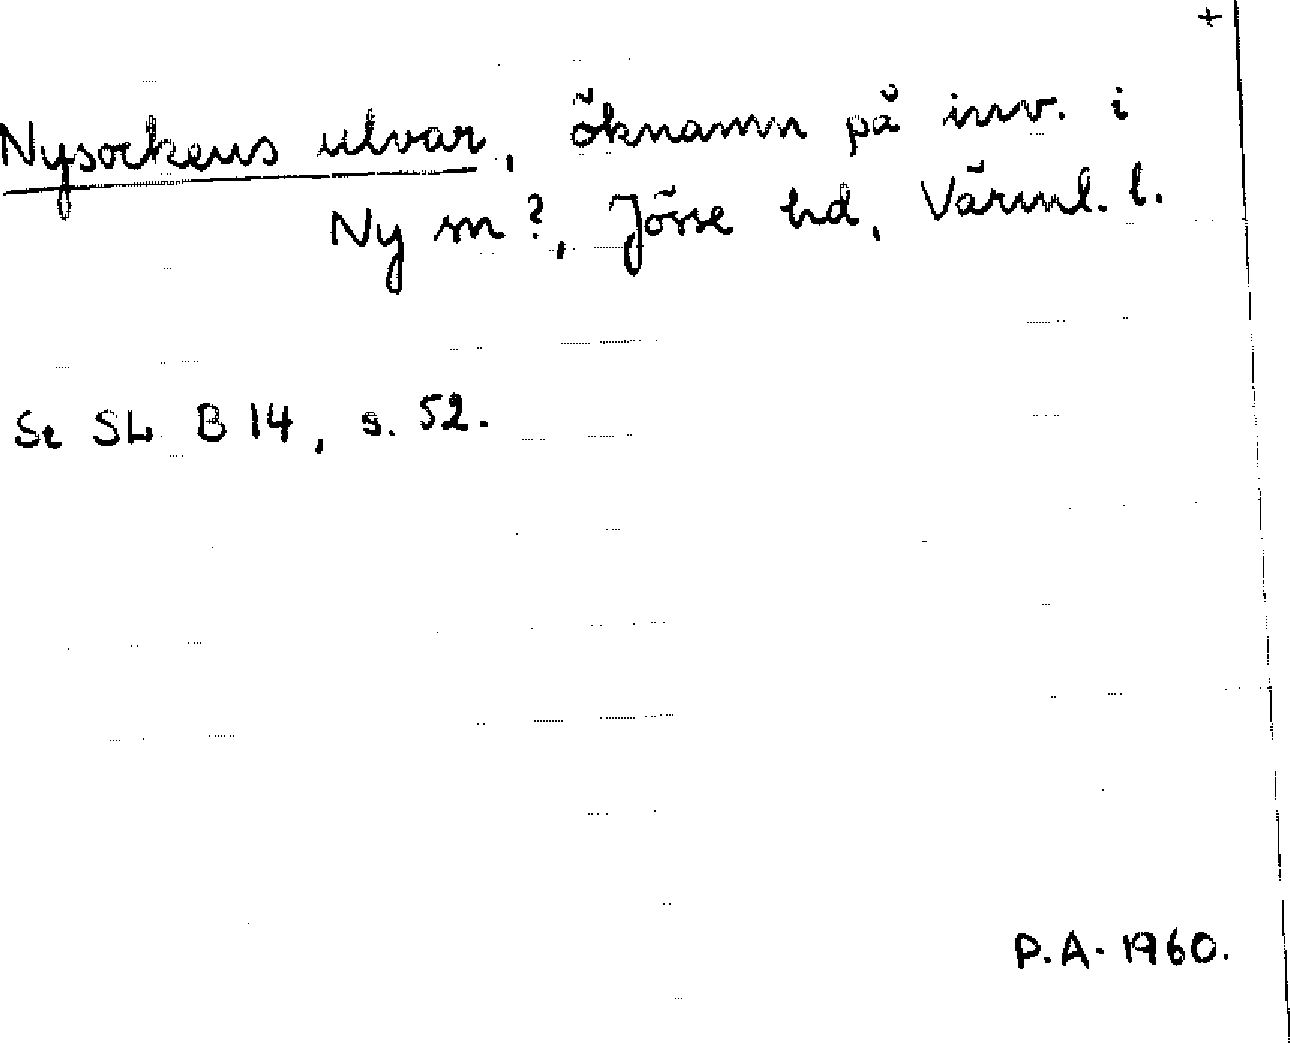 +
Nysockens ulvar, öknamn på inv. i
Ny sn?, Jösse hd, Värml. l.
St SL B 14, s. 52.
P.A. 1960.